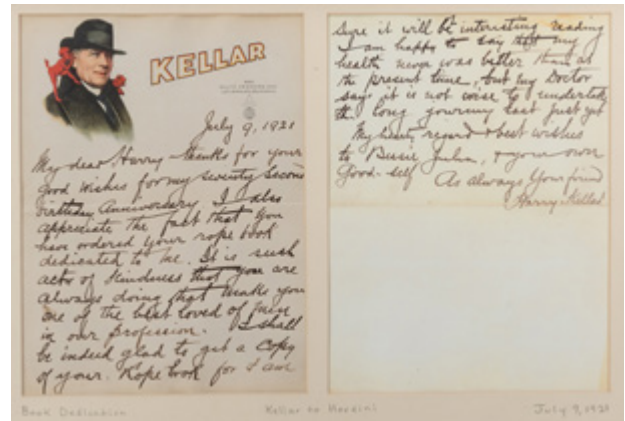 KELLAR
July 9, 1921
My dear Harry - thanks for your
good wishes for my seventy second
birthday Anniversary. I also
appreciate the fact that you
have ordered your rope book
dedicated to me. It is such
acts of kindness that you are
always doing that make you
one of the best loved of men
in our profession. I shall
be indeed glad to get a copy
of your. Rope book for I am
Sure it will be interesting reading
I am happy to say that my
health never was better than at
the present time, but my Doctor
says it is not wise to undertake
the long journey east just yet
My kindest regards & best wishes
to Bessie Julia, & your own
Good-self As always Your friend
Harry Kellar
Book Dedication Kellar to Houdini July 9, 1921